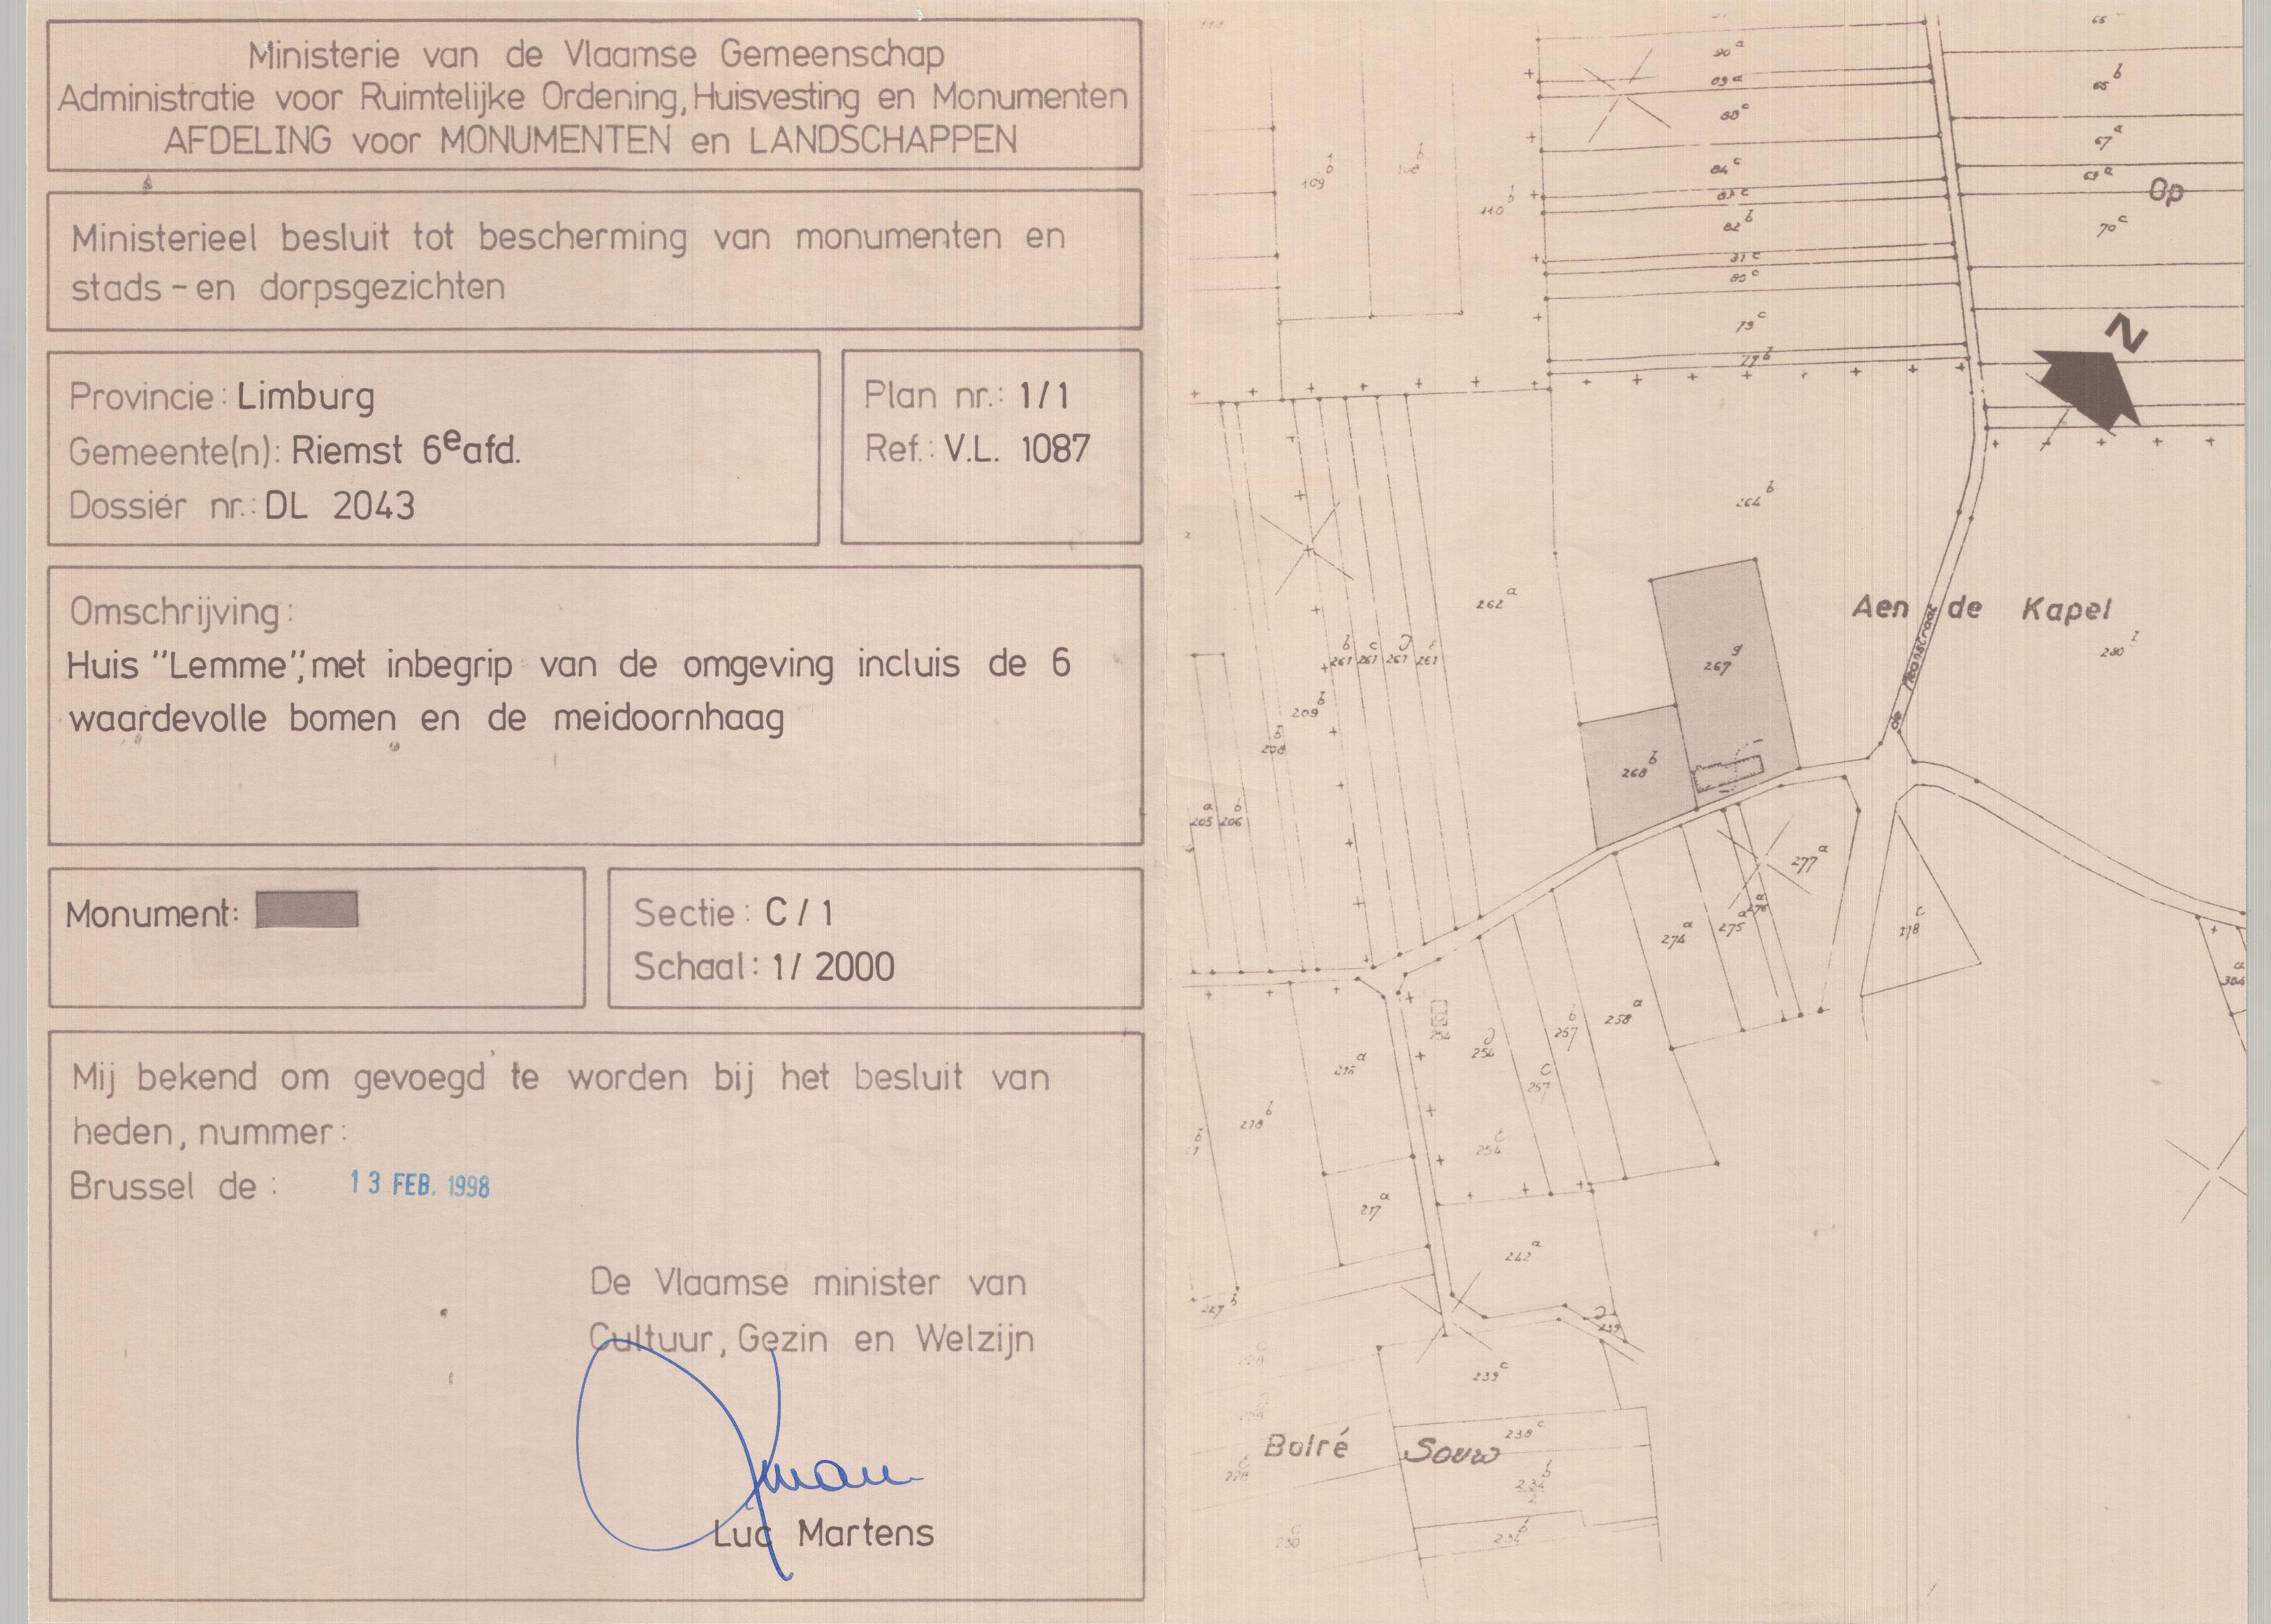 Ministerie van de Vlaamse Gemeenschap
Administratie voor Ruimtelijke Ordening, Huisvesting en Monumenten
AFDELING voor MONUMENTEN en LANDSCHAPPEN
Ministerieel besluit tot bescherming van monumenten en
stads-en dorpsgezichten
Provincie: Limburg
Gemeente(n): Riemst 6e afd.
Dossier nr.: DL 2043
Plan nr.: 1/1
Ref.: V.L. 1087
Omschrijving:
Huis "Lemme", met inbegrip van de omgeving incluis de 6
waardevolle bomen en de meidoornhaag
Monument:
Sectie: C/1
Schaal: 1/2000
Mij bekend om gevoegd te worden bij het besluit van
heden, nummer:
Brussel de: 13 FEB. 1998
De Vlaamse minister van
Cultuur, Gezin en Welzijn
Luc Martens
90a
89a
88c
84c
83c
82b
81c
80c
79c
79b
66
66b
67a
69a
Op
70c
109b
108b
110b
N
264b
262a
Aen de Kapel
280
267g
268b
261b 261c 261d 261
209b
208b
205a 206b
277a
276a
275a
274a
278c
304a
258a
257b
257c
254d
254c
216a
218b
217a
242a
227b
239c
238c
234b/2
234b
228c
230c
Bolré Souw